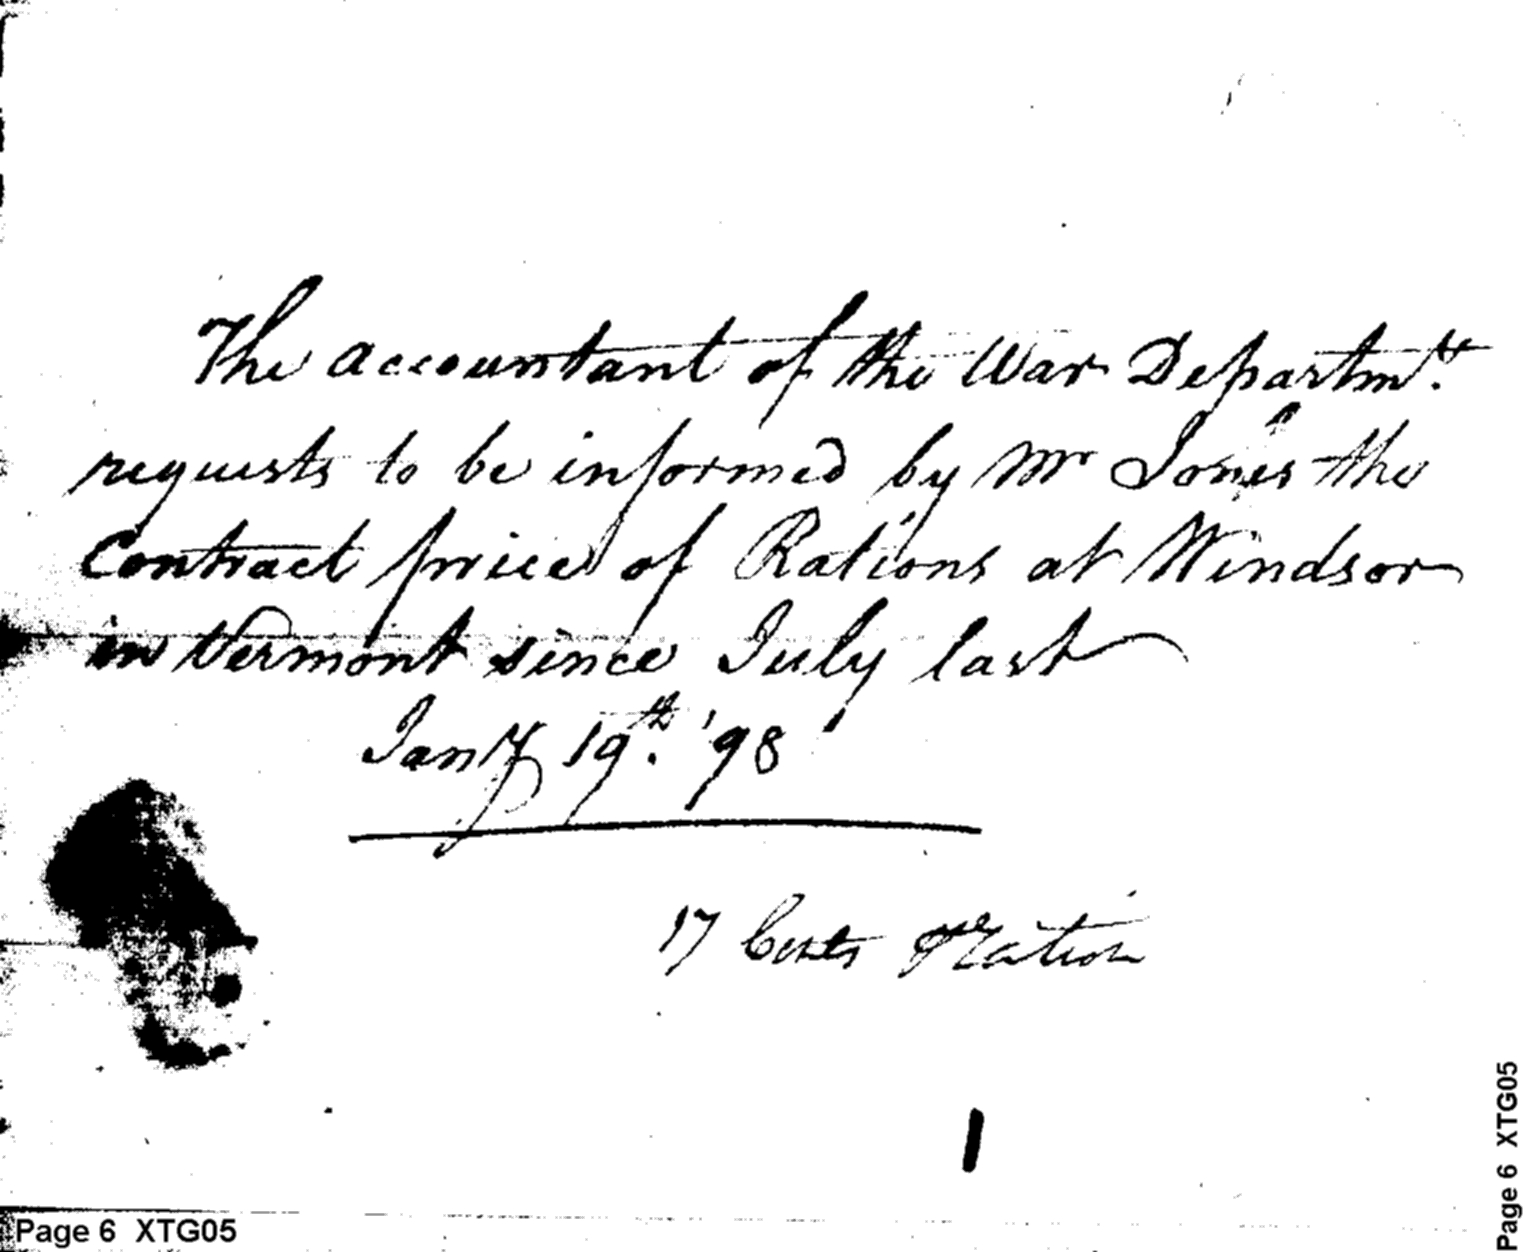 The accountant of the War Departmt.
requests to be informed by Mr Jones the
Contract price of Rations at Windsor
in Vermont since July last
Jany 19th. '98
17 Cents Ration
Page 6 XTG05
Page 6 XTG05